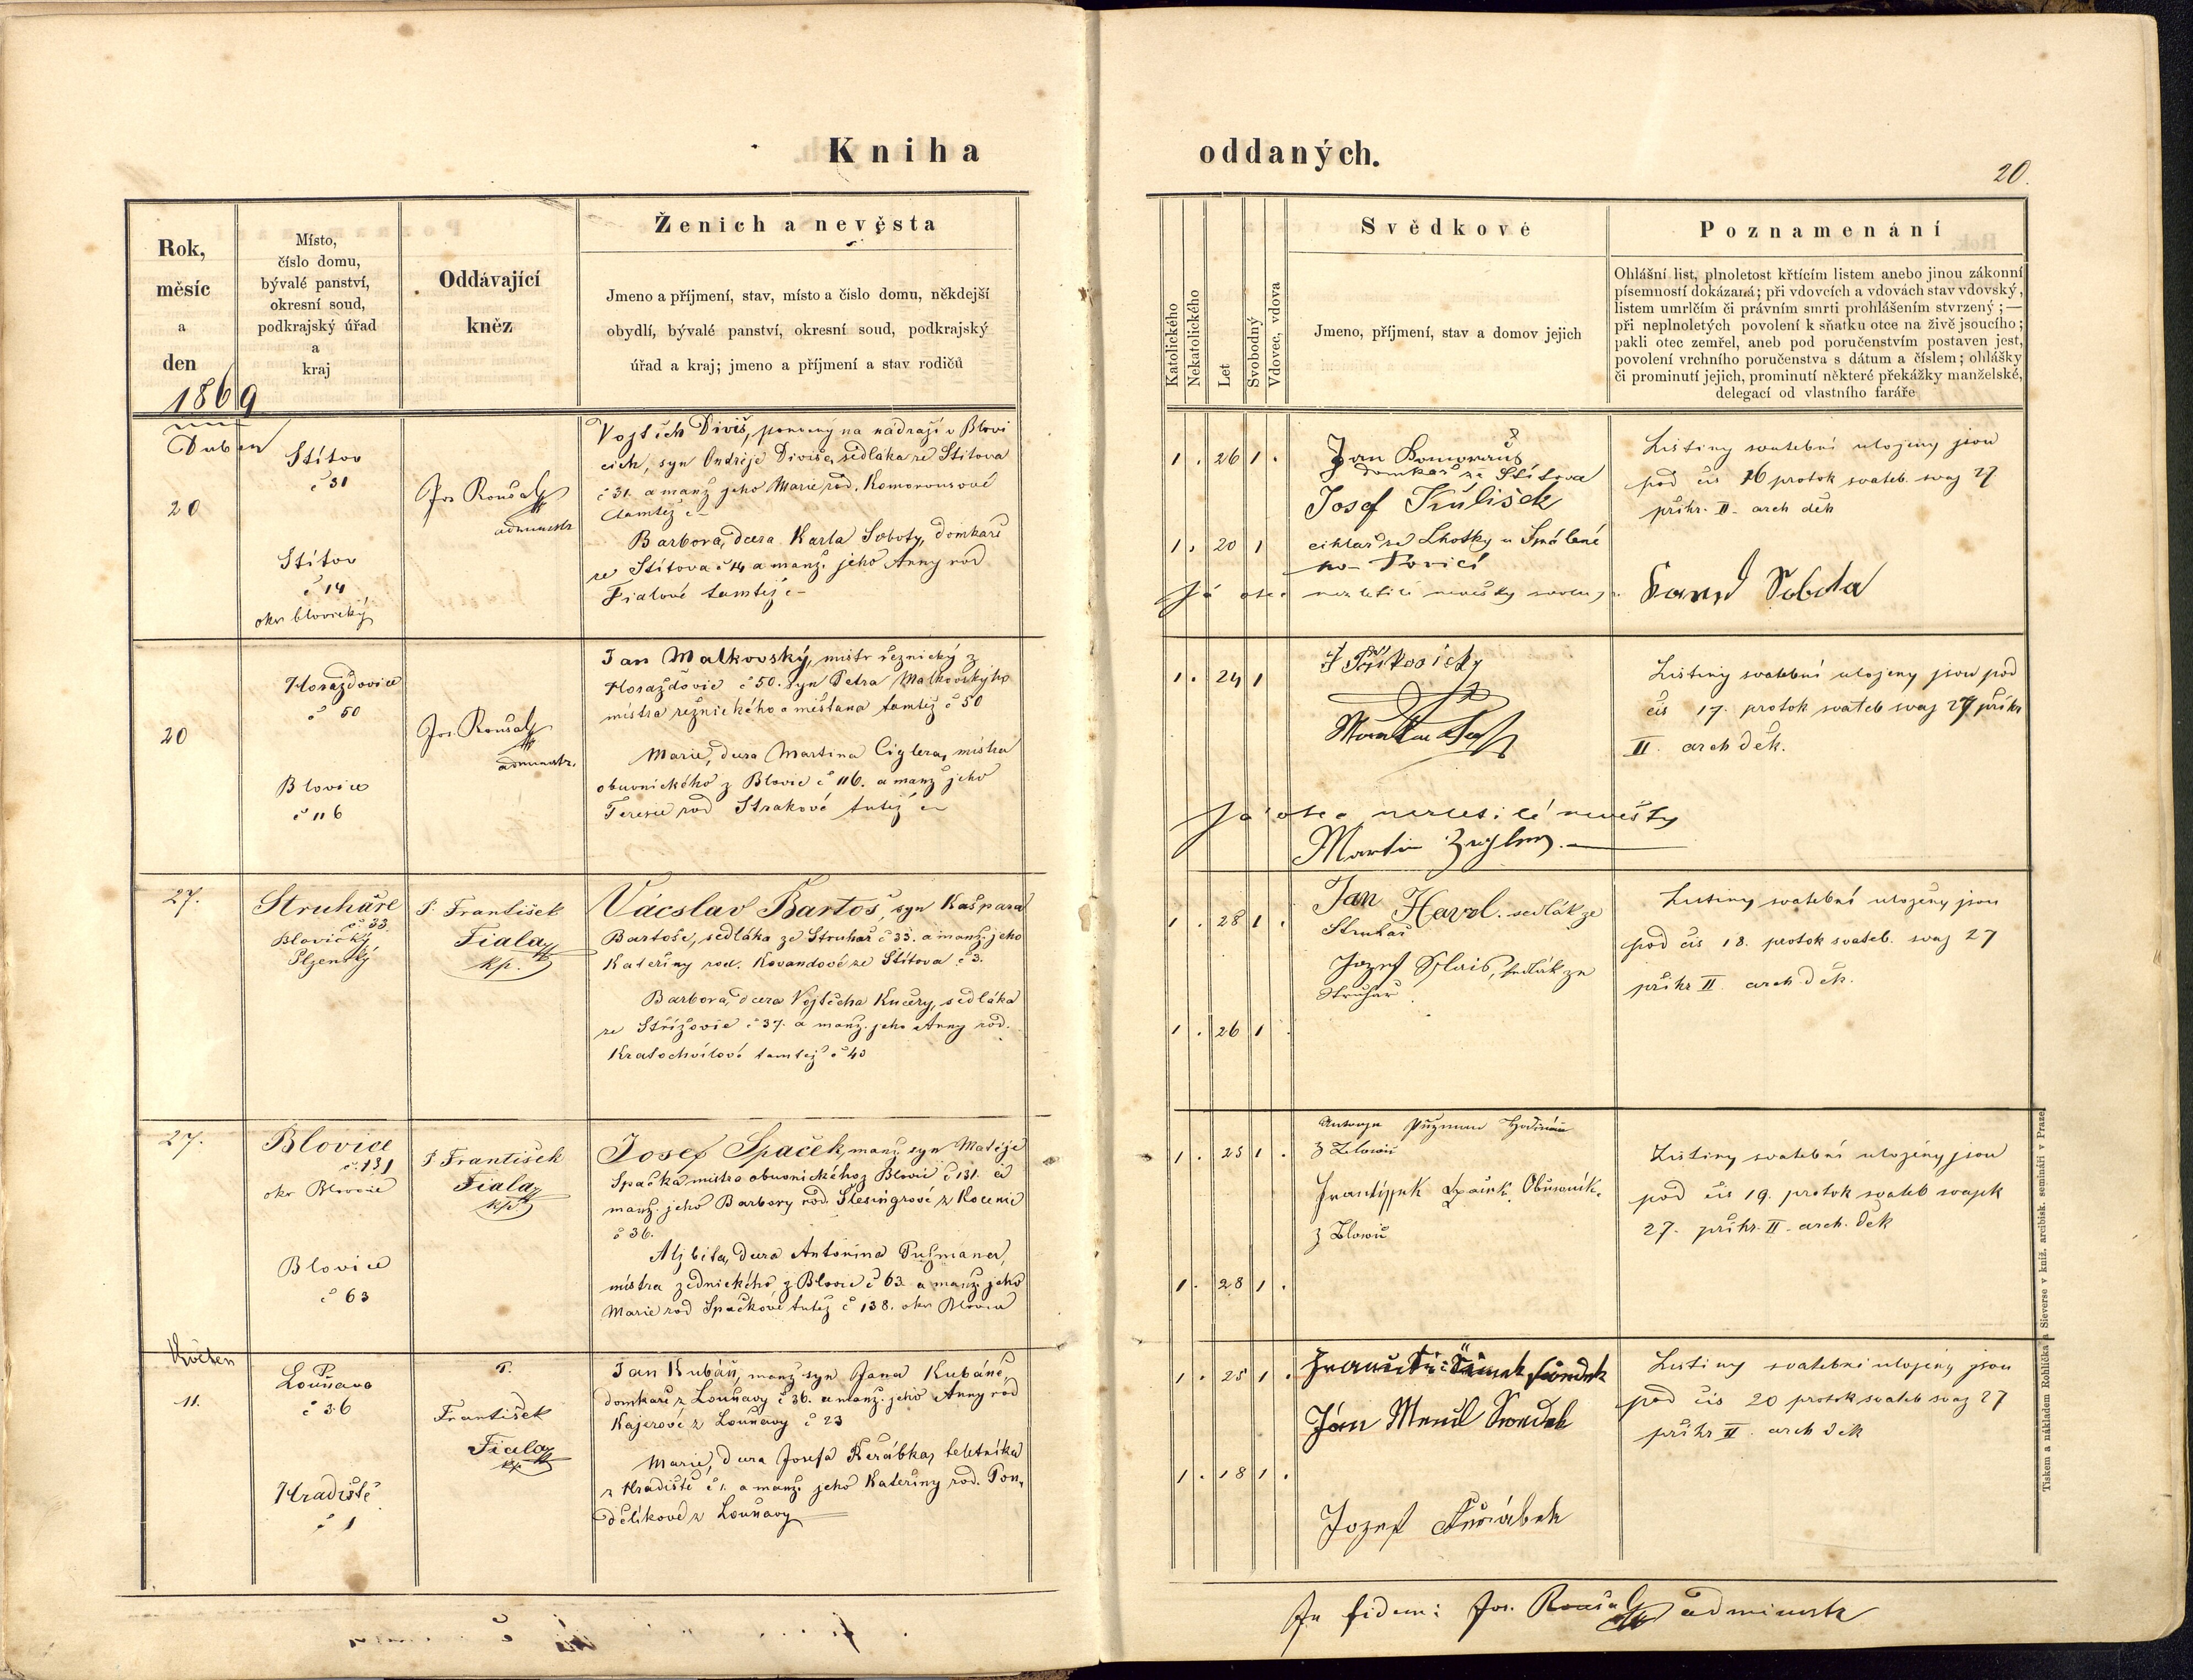 Kniha
oddaných.
20.
Rok,
měsíc
a
den
1869
Místo,
číslo domu,
bývalé panství,
okresní soud,
podkrajský úřad
a
kraj
Oddávající
kněz
Ženich a nevěsta
Jmeno a příjmení, stav, místo a číslo domu, někdejší
obydlí, bývalé panství, okresní soud, podkrajský
úřad a kraj; jmeno a příjmení a stav rodičů
Katolického
Nekatolického
Let
Svobodný
Vdovec, vdova
Svědkové
Jmeno, příjmení, stav a domov jejich
Poznamenání
Ohlášní list, plnoletost křtícím listem anebo jinou zákonní
písemností dokázaná; při vdovcích a vdovách stav vdovský,
listem umrlčím či právním smrti prohlášením stvrzený; —
při neplnoletých povolení k sňatku otce na živě jsoucího;
pakli otec zemřel, aneb pod poručenstvím postaven jest,
povolení vrchního poručenstva s dátum a číslem; ohlášky
či prominutí jejich, prominutí některé překážky manželské,
delegací od vlastního faráře
Duben
20
Štítov
č 31
Štítov
č 14
okr blovický
Jos Roušal
administr
Vojtěch Diviš, pomocný na nádraží v Blovi
cích, syn Ondřeje Diviše, sedláka ze Štítova
č 31. a manž jeho Marie rod. Komorousové
tamtéž
Barbora, dcera Karla Soboty, domkáře
ze Štítova č 14 a manž. jeho Anny rod
Fialové tamtéž
1 . 26 1 .
1 . 20 1
Jan Komorouš
domkař ze Štítova
Josef
cihlař ze Lhotky u Spálené
Poříčí
Já otec nezletilé nevěsty svoluj
Karel Sobota
Listiny svatební uloženy jsou
pod čís 16 protok svateb. svaz 27
přihr. II. arch děk
20
Horažďovice
č 50
Blovice
č 116
Jos. Roušal
administr.
Jan Malkovský, mistr řeznický z
Horažďovic č 50. syn Petra Malkovského
mistra řeznického a měšťana tamtéž č 50
Marie, dcera Martina Ciglera, mistra
obuvnického z Blovic č 116. a manž jeho
Terezie rod Strakové tutéž
1 . 24 1
Já otec nezletilé nevěsty
Martin
Listiny svatební uloženy jsou pod
čís 17. protok svateb svaz 27 přihr
II. arch děk.
27.
Struhaře
č. 33
Blovický
Plzenský
P. František
Fiala
kp.
Václav Bartoš, syn Kašpara
Bartoše, sedláka ze Struhař č 33. a manž. jeho
Kateřiny rod. Kovandové ze Štítova č 3.
Barbora, dcera Vojtěcha Kučery, sedláka
ze Střížovic č 37. a manž. jeho Anny rod.
Kratochvílové tamtéž č 40
1 . 28 1 .
1 . 26 1 .
Jan Havel. sedlák ze
Struhař
Jozef Šlais, sedlák ze
Struhař
Listiny svatební uloženy jsou
pod čís 18. protok svateb. svaz 27
přihr II. arch děk.
27.
Blovice
č. 131
okr Blovice
Blovice
č 63
P. František
Fiala
kp.
Josef Špaček, manž. syn Matěje
Špačka mistra obuvnického z Blovic č 131. a
manž. jeho Barbory rod. Šlesingrové z Kocenic
č 36.
Alžběta, dcera Antonína Pužmana,
mistra zednického, z Blovic č 63. a manž. jeho
Marie rod Špačkové tutéž č 138. okr Blovice
1 . 23 1 .
1 . 28 1 .
z Blowic
Špaček. Obuwník.
z Blowic
Listiny svatební uloženy jsou
pod čís 19. protok svateb svazek
27. přihr. II. arch. děk
Květen
11.
Louňava
č 36
Hradiště
č 1
P.
František
Fiala
kp.
Jan Kubáň, manž syn Jana Kubáně,
domkáře z Louňavy č 36. a manž. jeho Anny rod
Kajerové z Louňavy č 23
Marie, dcera Josefa Jeřábka,
z Hradiště č 1. a manž. jeho Kateřiny rod. Pon-
dělíkové z Louňavy
1 . 25 1 .
1 . 18 1 .
Ján
Jozef Jeřábek
Listiny svatební uloženy jsou
pod čís 20 protok svateb svaz 27
přihr II. arch děk
In fidem: Jos. Roušal administr
Tiskem a nákladem Rohlíčka a Sieverse v kníž. arcibisk. semináři v Praze.